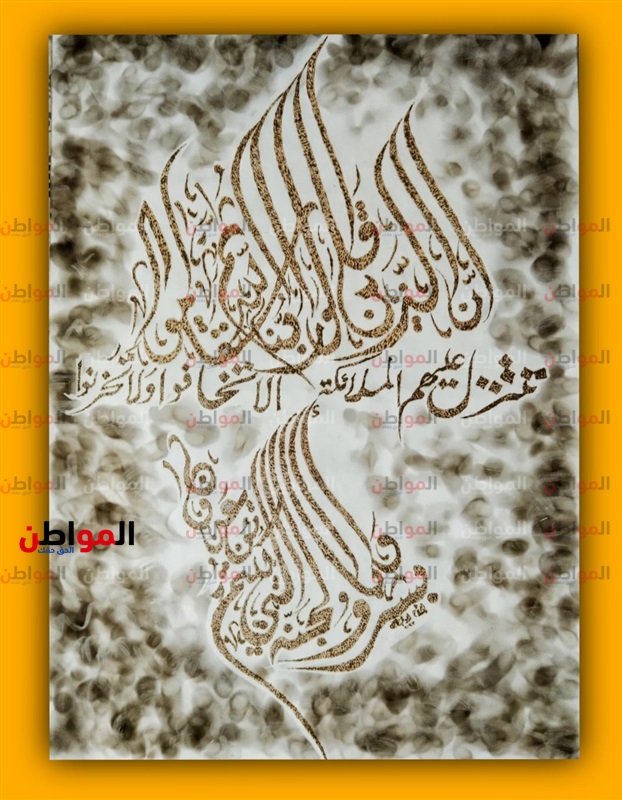 إن الذين قالوا ربنا الله ثم استقاموا
تتنزل عليهم الملائكة الا تخافوا ولا تحزنوا
وأبشروا بالجنة التي كنتم توعدون
المواطن